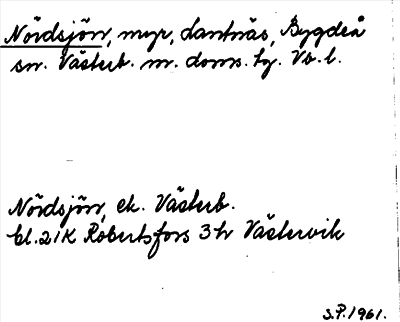 Nördsjön, myr, Lantnäs, Bygdeå
sn. Västerb. n. doms. tg. Vb. l.
Nördsjön, ek. Västerb.
bl. 21K Robertsfors 3h Västervik
S.P. 1961.